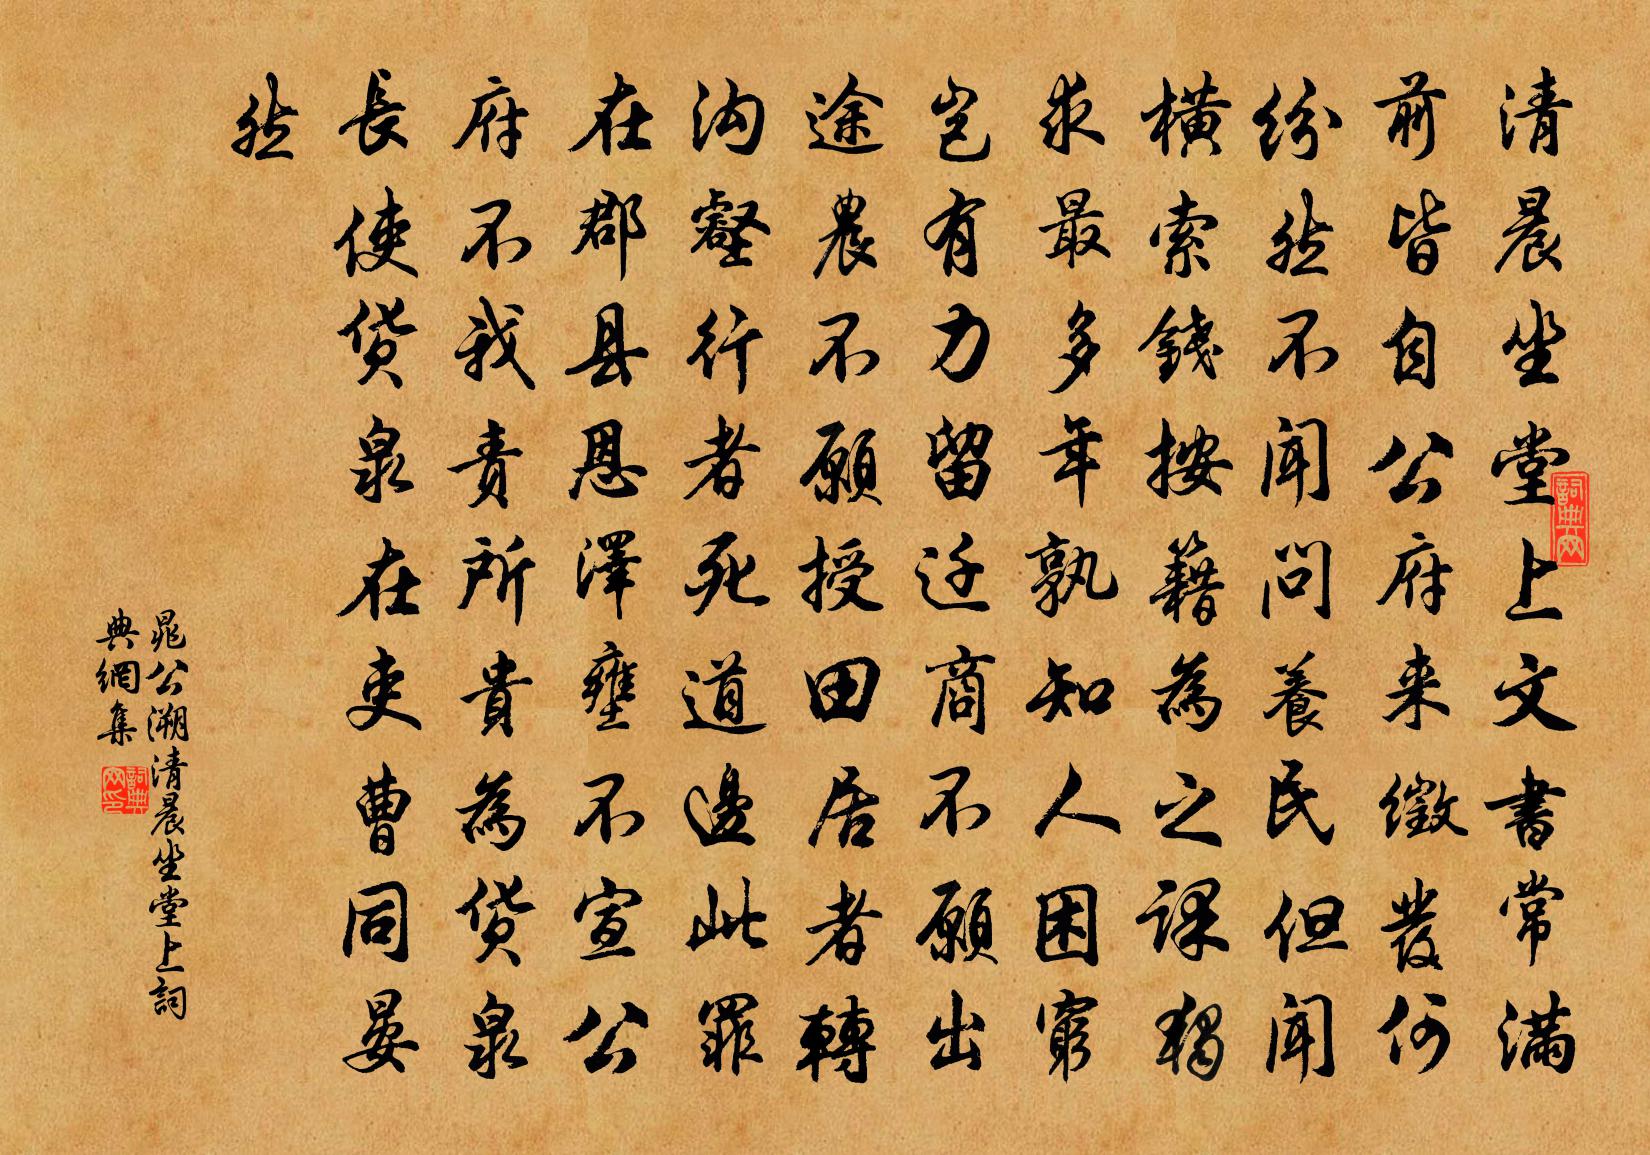 清晨坐堂上文書常滿
前皆自公府来徵發何
紛然不聞問養民但聞
橫索錢按籍為之課獨
求最多年孰知人困窮
豈有力留迁商不願出
途農不願授田居者轉
沟壑行者死道邊此罪
在郡县恩澤壅不宣公
府不我责所貴為货泉
長使货泉在吏曹同晏
然
晁公溯清晨坐堂上詞
典網集
詞典网
詞典网印